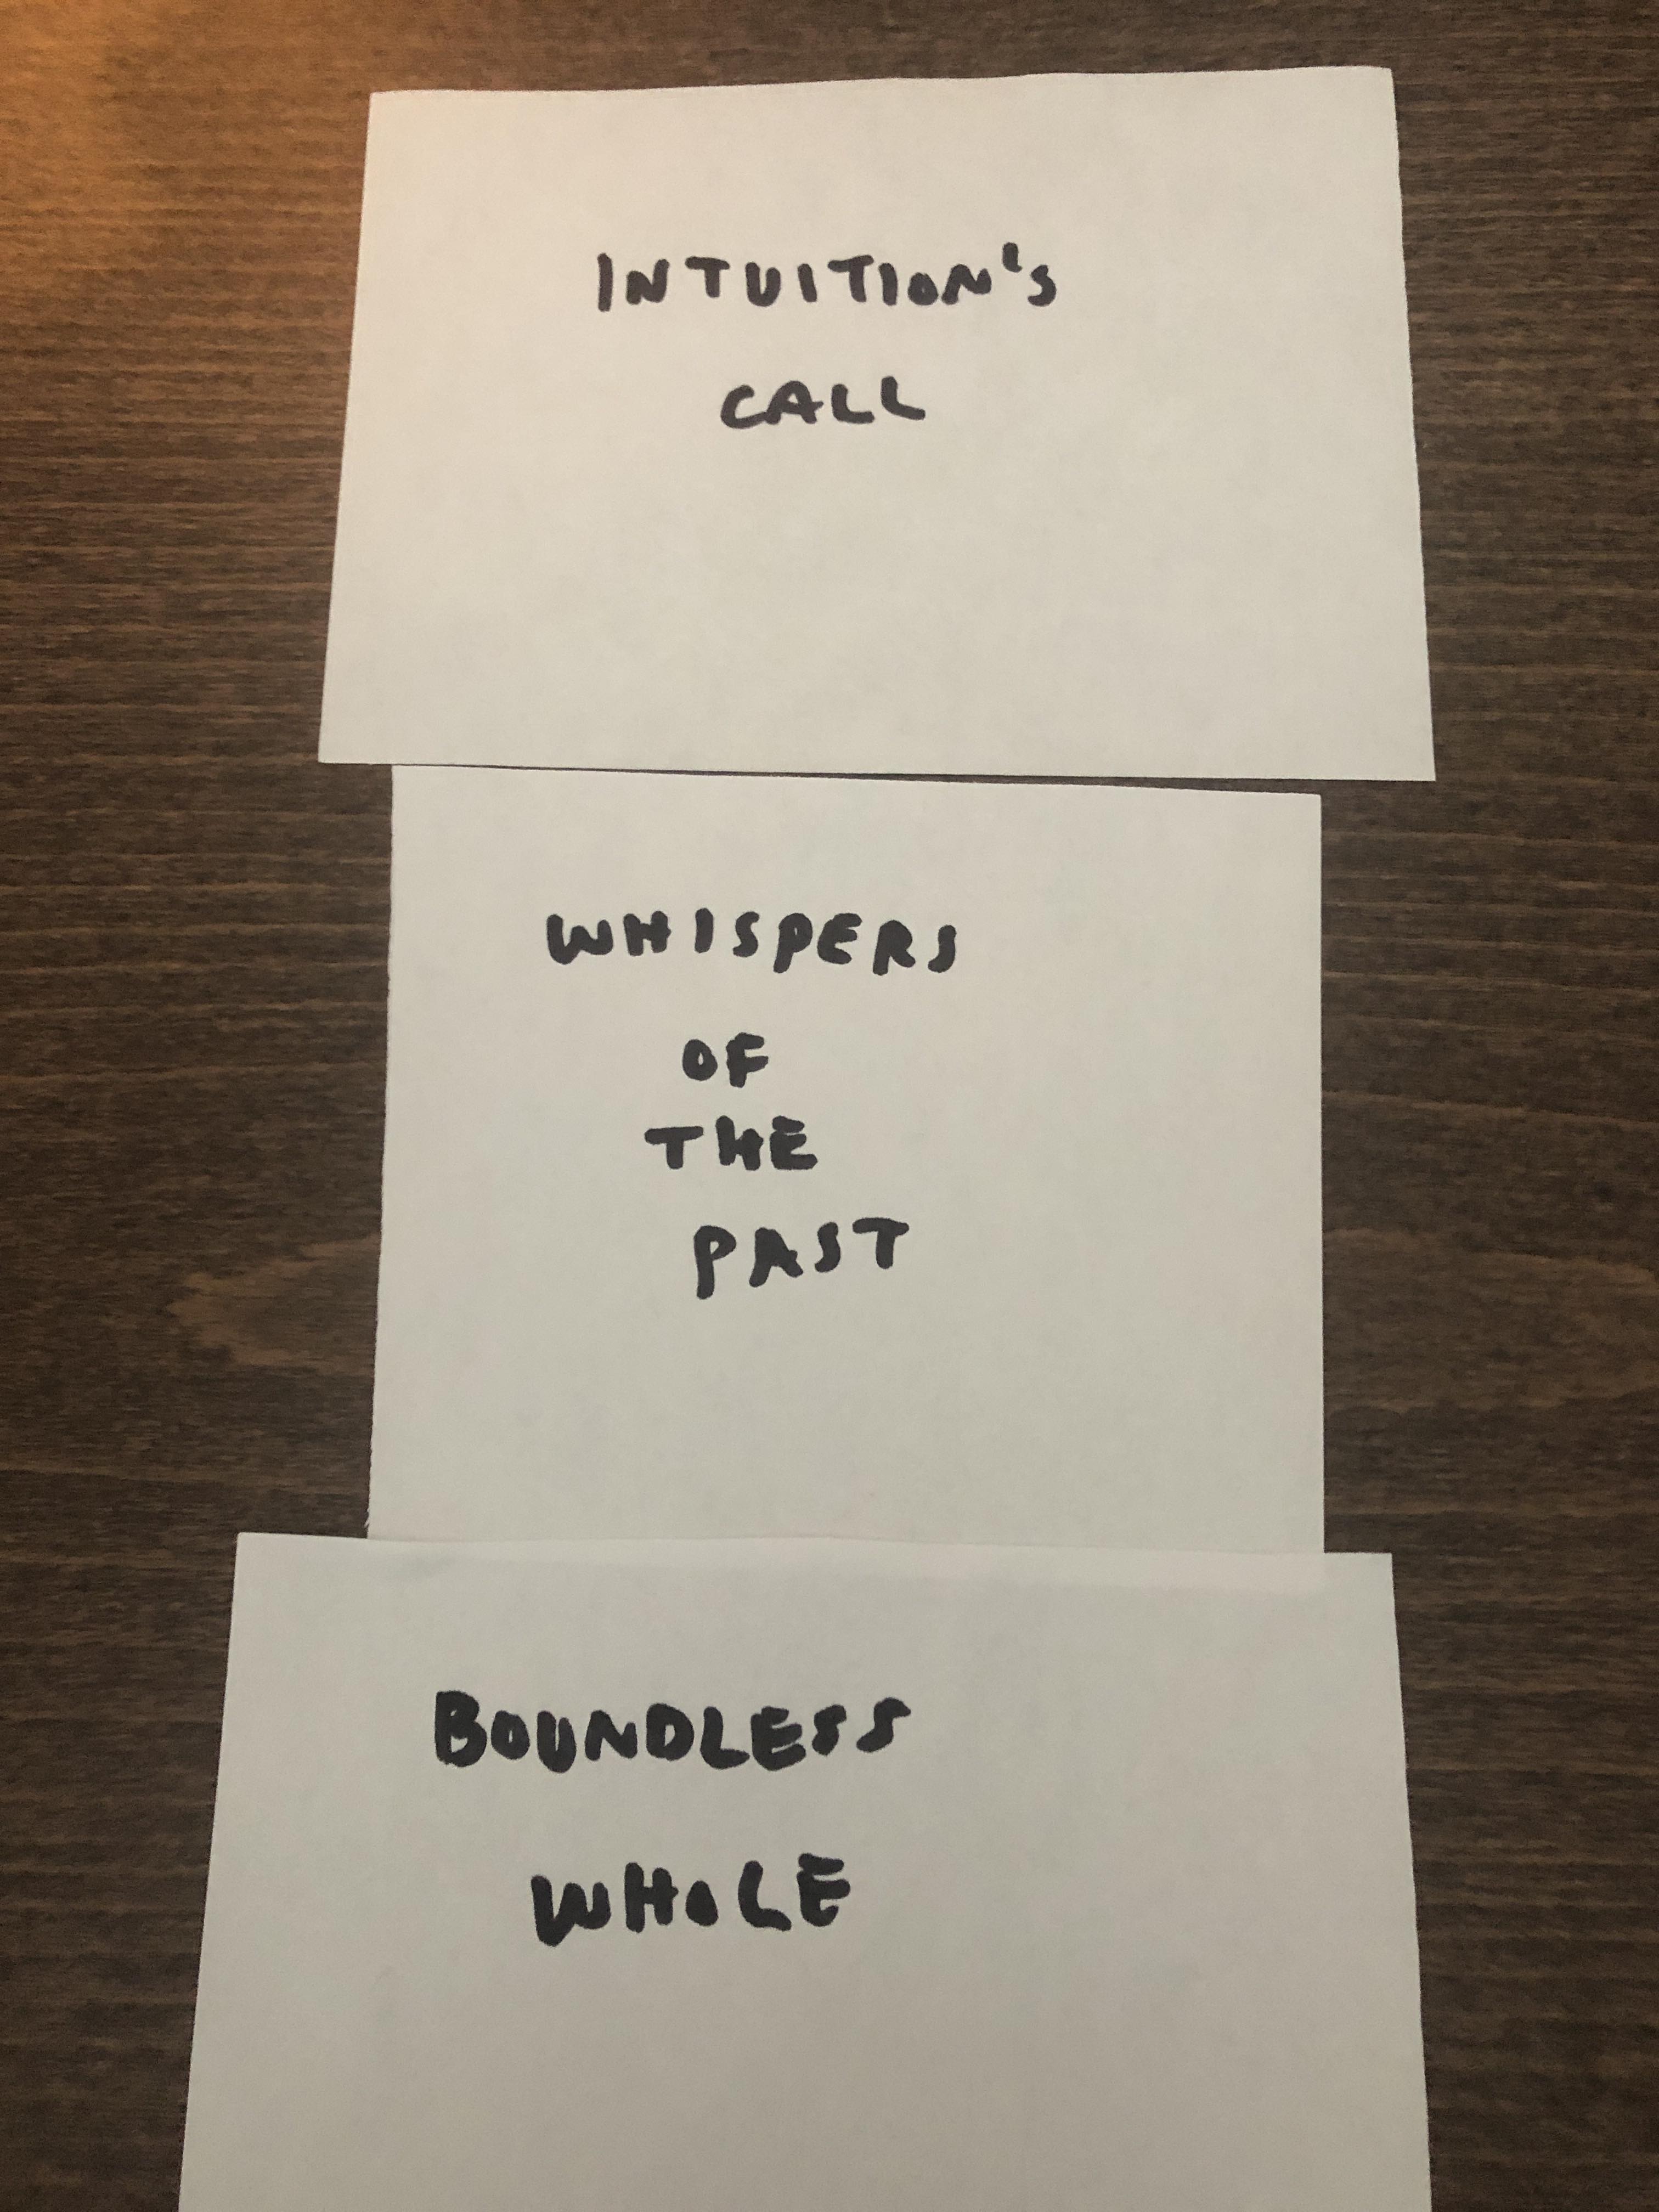 INTUITION'S
CALL
WHISPERS
OF
THE
PAST
BOUNDLESS
WHOLE